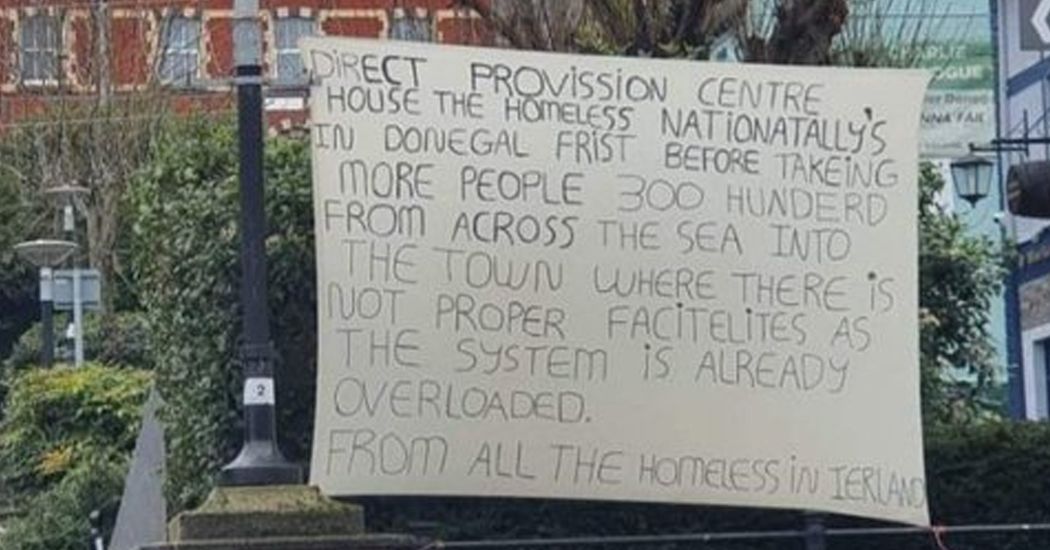 DIRECT PROVISSION CENTRE
HOUSE THE HOMELESS NATIONATALLY'S
IN DONEGAL FRIST BEFORE TAKEING
MORE PEOPLE 300 HUNDERD
FROM ACROSS THE SEA INTO
THE TOWN WHERE THERE IS
NOT PROPER FACITELITES AS
THE SYSTEM IS ALREADY
OVERLOADED.
FROM ALL THE HOMELESS IN IERLAND
2